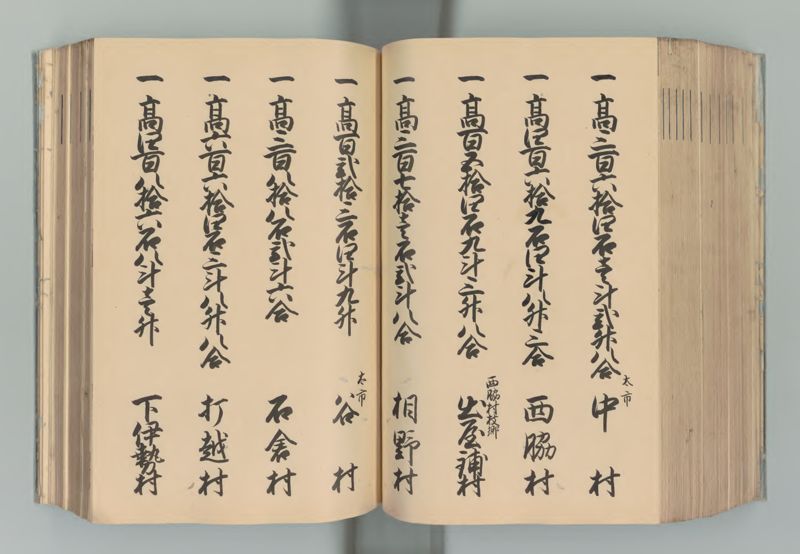 一 高三百六拾四石壱斗弐升八合 太市 中村
一 高四百六拾九石四斗八升三合 西脇村
一 高百五拾四石九斗三升八合 西脇村枝郷 出屋鋪村
一 高三百七拾壱石弐斗八合 相野村
一 高百弐拾三石四斗九升 太市 谷村
一 高三百八拾八石弐斗六合 石倉村
一 高六百六拾四石三斗八升八合 打越村
一 高四百八拾六石八斗三升 下伊勢村